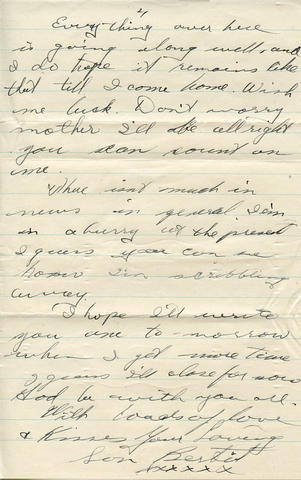 2/
Everything over here
is going along well, and
I do hope it remains like
that till I come home. Wish
me luck. Don't worry
mother I'll be allright
you can count on
me.
There isn't much in
news in general I'm
in a hurry at the present
I guess you can see
how I'm scribbling
away.
I hope I'll write
you one to-morrow
when I get more time
I guess I'll close for now
God be with you all.
With loads of love
& Kisses Your Loving
Son Bertie
xxxxx